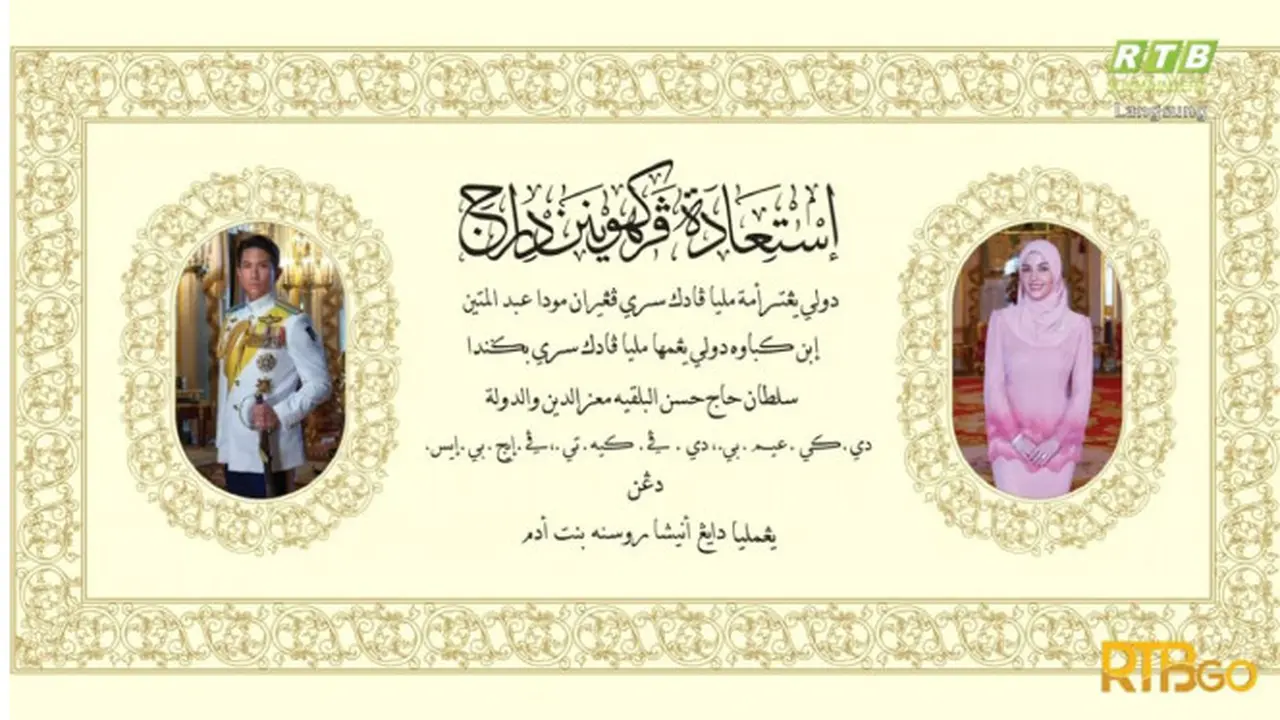 RTB
Langsung
إستعادة ڤرکهوينن دراج
دولي يڠتر أمة مليا ڤادك سري ڤڠيران مودا عبد المتين
إبن کباوه دولي يڠمها مليا ڤادك سري بڬيندا
سلطان حاج حسن البلقيه معز الدين والدولة
دي.کي.عيم.بي.،دي.ڤي.کيه.تي.،ڤي.إيچ.بي.إيس.
دڠن
يڠمليا دايڠ أنيشا روسنه بنت أدم
RTBGO